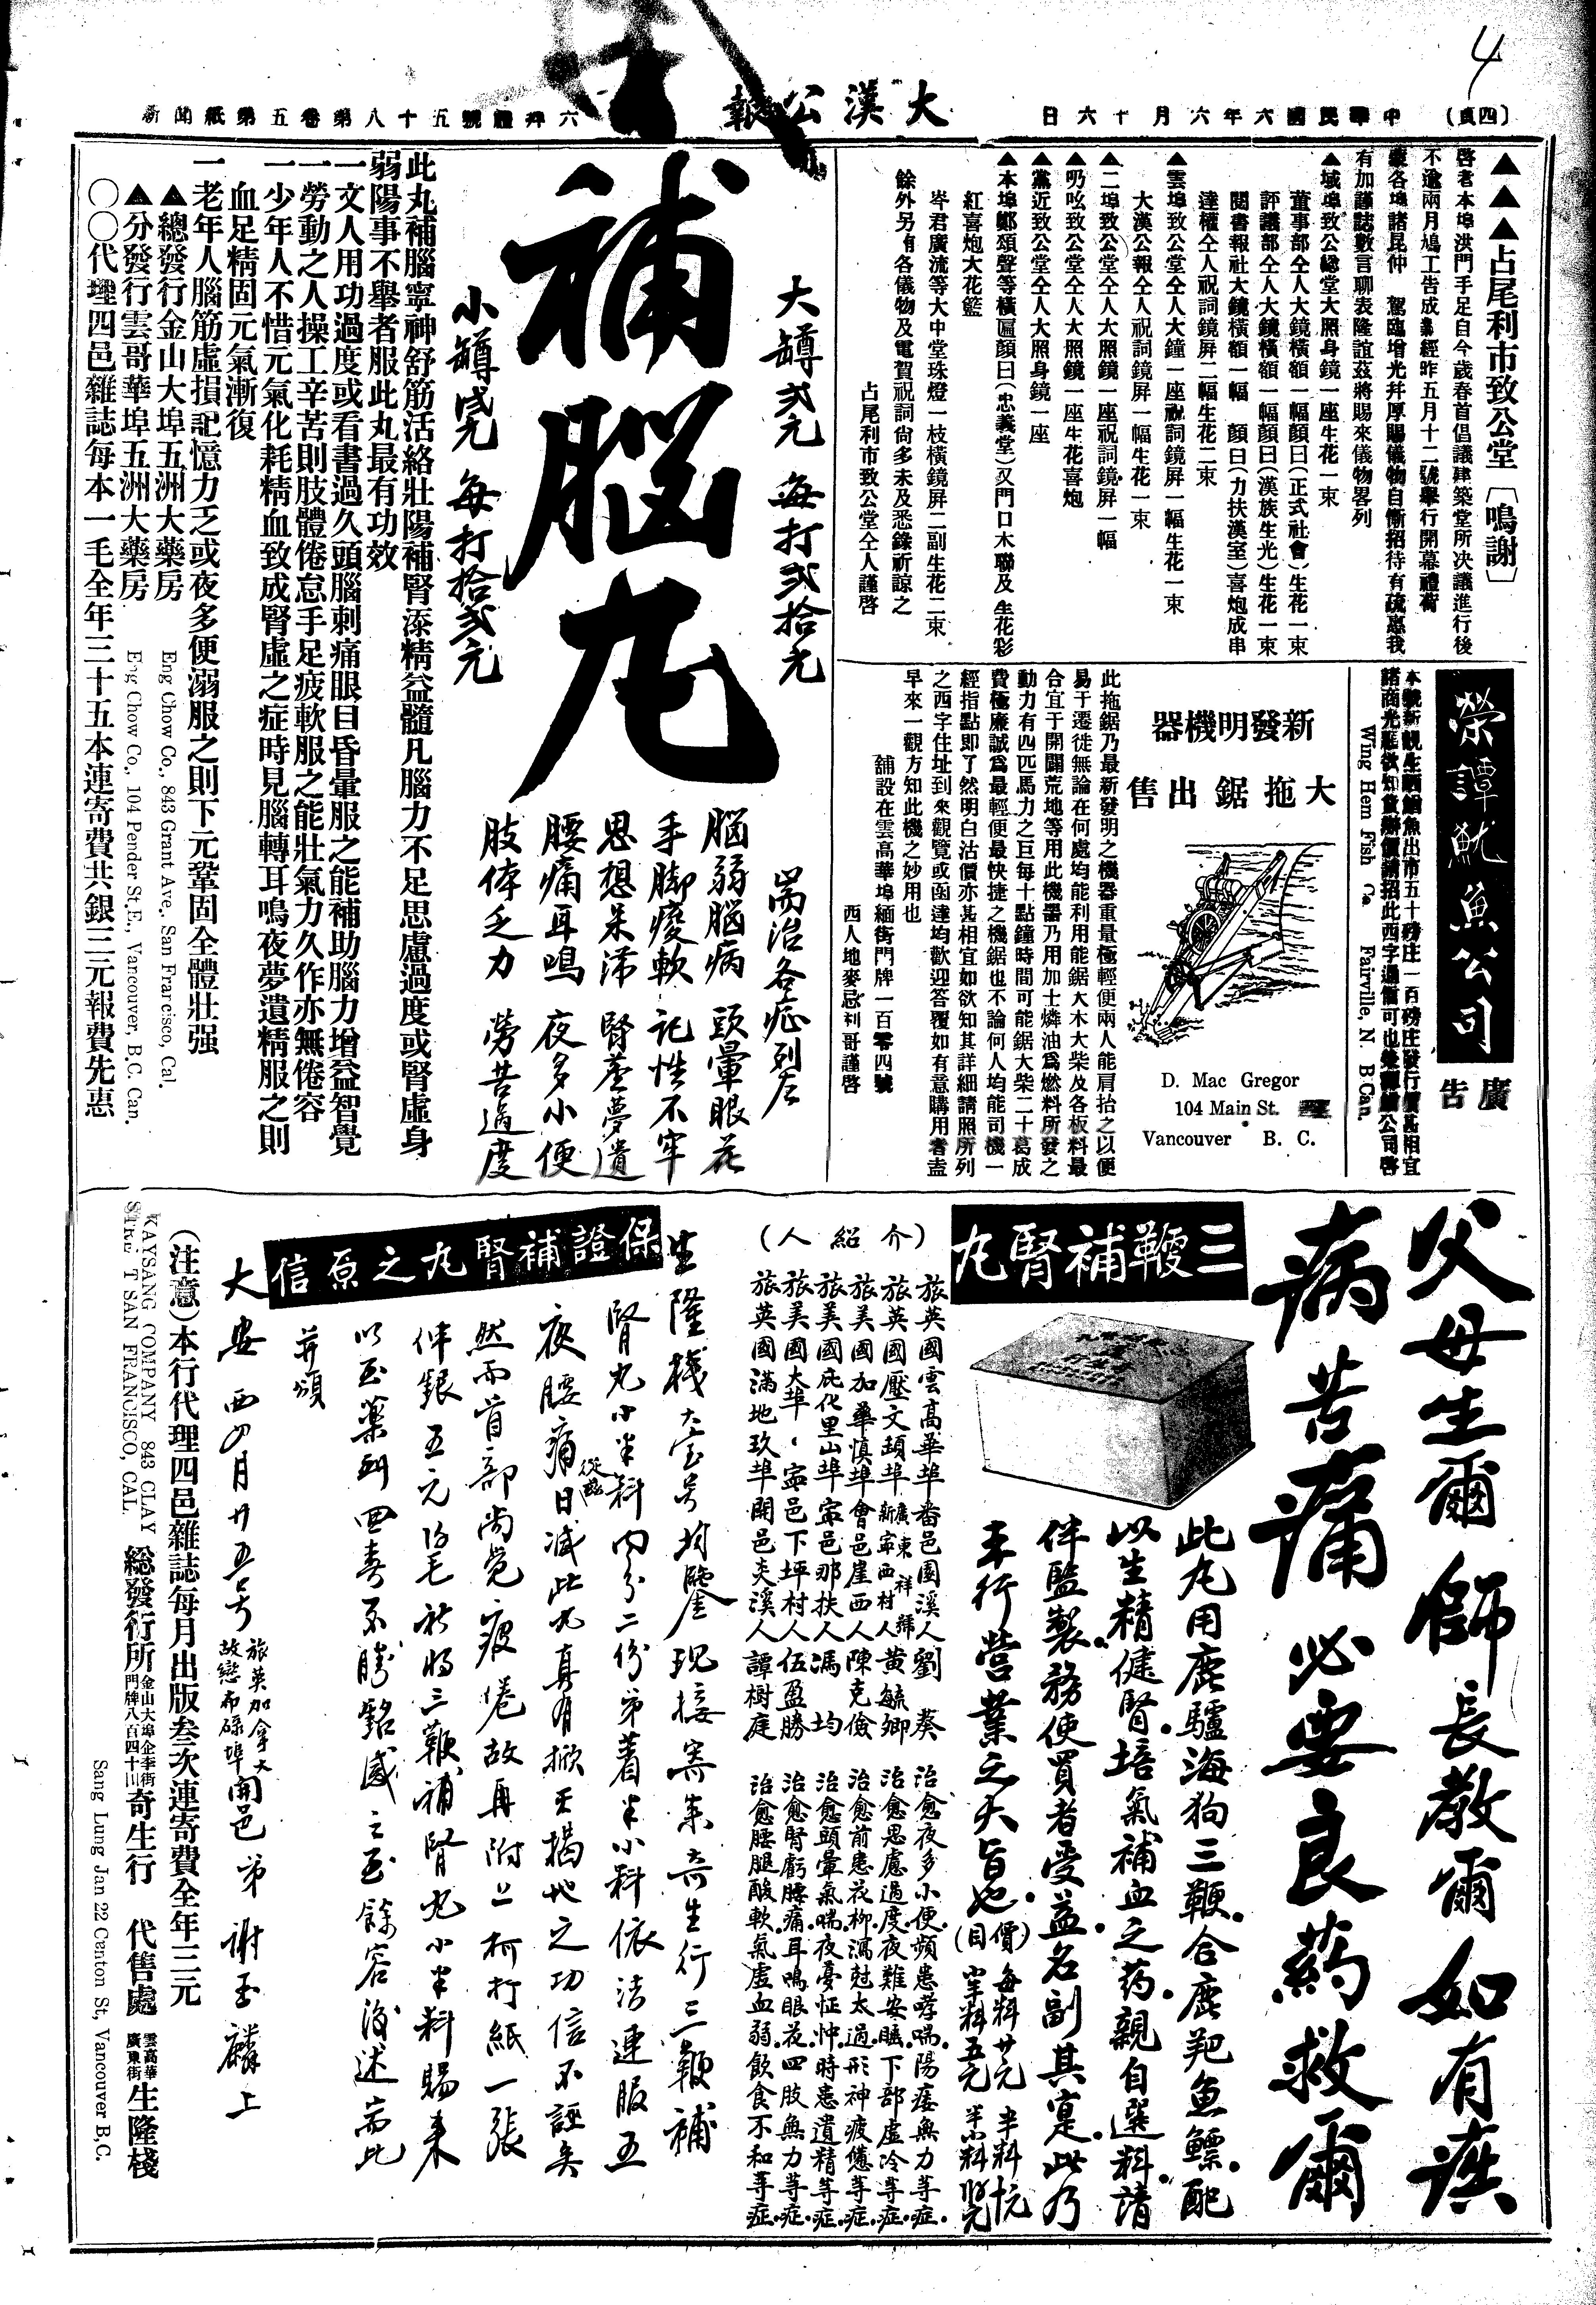 4
(四頁)
中華民國六年六月十六日
大漢公報
六拜禮號五十八第卷五第紙聞新
▲▲▲占尾利市致公堂〔鳴謝〕
啓者本埠洪門手足自今歲春首倡議建築堂所决議進行後
不逾兩月鳩工告成業經昨五月十二號舉行開幕禮荷
蒙各埠諸昆仲 駕臨增光幷厚賜儀物自慚招待有疏惠我
有加謹誌數言聊表隆誼茲將賜來儀物畧列
▲域埠致公總堂大照身鏡一座生花一束
董事部仝人大鏡橫額一幅顏曰(正式社會)生花一束
評議部仝人大鏡橫額一幅顏曰(漢族生光)生花一束
閱書報社大鏡橫額一幅 顏曰(力扶漢室)喜炮成串
達權仝人祝詞鏡屏二幅生花二束
▲雲埠致公堂仝人大鐘一座祝詞鏡屏一幅生花一束
大漢公報仝人祝詞鏡屏一幅生花一束
▲二埠致公堂仝人大照鏡一座祝詞鏡屏一幅
▲叨吆致公堂仝人大照鏡一座生花喜炮
▲黨近致公堂仝人大照身鏡一座
▲本埠鄭頌聲等橫匾顏曰(忠義堂)又門口木聯及生花彩
紅喜炮大花籃
岑君廣流等大中堂珠燈一枝橫鏡屏二副生花二束
餘外另有各儀物及電賀祝詞尙多未及悉錄祈諒之
占尾利市致公堂仝人謹啓
榮譚魷魚公司
廣告
本號新親生晒魷魚出市五十磅庄一百磅庄發行價甚相宜
諸商光顧欲知貨辦價請招此西字通信可也榮譚魷公司啓
Wing Hem Fish Co. Fairville, N. B Can.
新發明機器
大拖鋸出售
D. Mac Gregor
104 Main St.
Vancouver B. C.
此拖鋸乃最新發明之機器重量極輕便兩人能肩抬之以便
易于遷徙無論在何處均能利用能鋸大木大柴及各板料最
合宜于開闢荒地等用此機器乃用加士燐油爲燃料所發之
動力有四匹馬力之巨每十點鐘時間可能鋸大柴二十葛成
費極廉誠爲最輕便最快捷之機鋸也不論何人均能司機一
經指點即了然明白沽價亦甚相宜如欲知其詳細請照所列
之西字住址到來觀覽或函達均歡迎答覆如有意購用者盍
早來一觀方知此機之妙用也
舖設在雲高華埠緬街門牌一百零四號
西人地麥忌利哥謹啓
補腦丸
大罇弍元 每打弍拾元
小罇壹元 每打拾弍元
耑治各症列左
腦弱腦病 頭暈眼花
手脚痠軟 記性不牢
思想呆滯 腎虛夢遺
腰痛耳鳴 夜多小便
肢体乏力 勞苦過度
此丸補腦寧神舒筋活絡壯陽補腎添精益髓凡腦力不足思慮過度或腎虛身
弱陽事不舉者服此丸最有功效
一文人用功過度或看書過久頭腦刺痛眼目昏暈服之能補助腦力增益智覺
一勞動之人操工辛苦則肢體倦怠手足疲軟服之能壯氣力久作亦無倦容
一少年人不惜元氣化耗精血致成腎虛之症時見腦轉耳鳴夜夢遺精服之則
血足精固元氣漸復
一老年人腦筋虛損記憶力乏或夜多便溺服之則下元鞏固全體壯强
▲總發行金山大埠五洲大藥房
Eng Chow Co., 843 Grant Ave., San Francisco, Cal.
▲分發行雲哥華埠五洲大藥房
Eng Chow Co., 104 Pender St. E., Vancouver, B. C. Can.
〇〇代理四邑雜誌每本一毛全年三十五本連寄費共銀三元報費先惠
父母生爾 師長教爾 如有疾
病苦痛 必要良葯救爾
三鞭補腎丸
此丸用鹿驢海狗三鞭合鹿羓魚鰾配
以生精健腎培氣補血之葯親自選料請
伴監製務使買者受益名副其寔此乃
本行營業之大旨也
(價目)每料廿元 半料十元
小半料五元
(介紹人)
旅英國雲高華埠番邑園溪人劉葵 治愈夜多小便頻患哮喘陽痿無力等症
旅英國壓文頓埠廣東祥號新寧西村人黃毓卿 治愈思慮過度夜難安眠下部虛冷等症
旅美國加華慎埠會邑崖西人陳克儉 治愈前患花柳瀉尅太過形神疲憊等症
旅美國庇化里山埠寧邑那扶人馮均 治愈頭暈氣喘夜憂怔忡時患遺精等症
旅美國大埠寧邑下坪村人伍盈勝 治愈腎虧腰痛耳鳴眼花四肢無力等症
旅英國滿地玖埠開邑夾溪人譚樹庭 治愈腰腿酸軟氣虛血弱飲食不和等症
保證補腎丸之原信
生隆棧大宝号均鑒現接寄來奇生行三鞭補
腎丸小半料內分二份弟着半小料依法連服五
夜腰痛從此日減此丸真有掀天揭地之功信不誣矣
然而首部尚覺疲倦故再附上柯打紙一張
伴銀五元 祈將三鞭補腎丸小半料賜來
以至藥到回春不勝銘感之至餘容後述耑此
并頌
大安 西四月廿五号 旅英加拿大故戀布碌埠開邑弟謝玉麟上
(注意)本行代理四邑雜誌每月出版叁次連寄費全年三元
KAYSANG COMPANY 843 CLAY
STREET SAN FRANCISCO, CAL.
総發行所金山大埠企李街門牌八百四十三奇生行 代售處雲高華廣東街生隆棧
Sang Lung Jan 22 Canton St, Vancouver B.C.